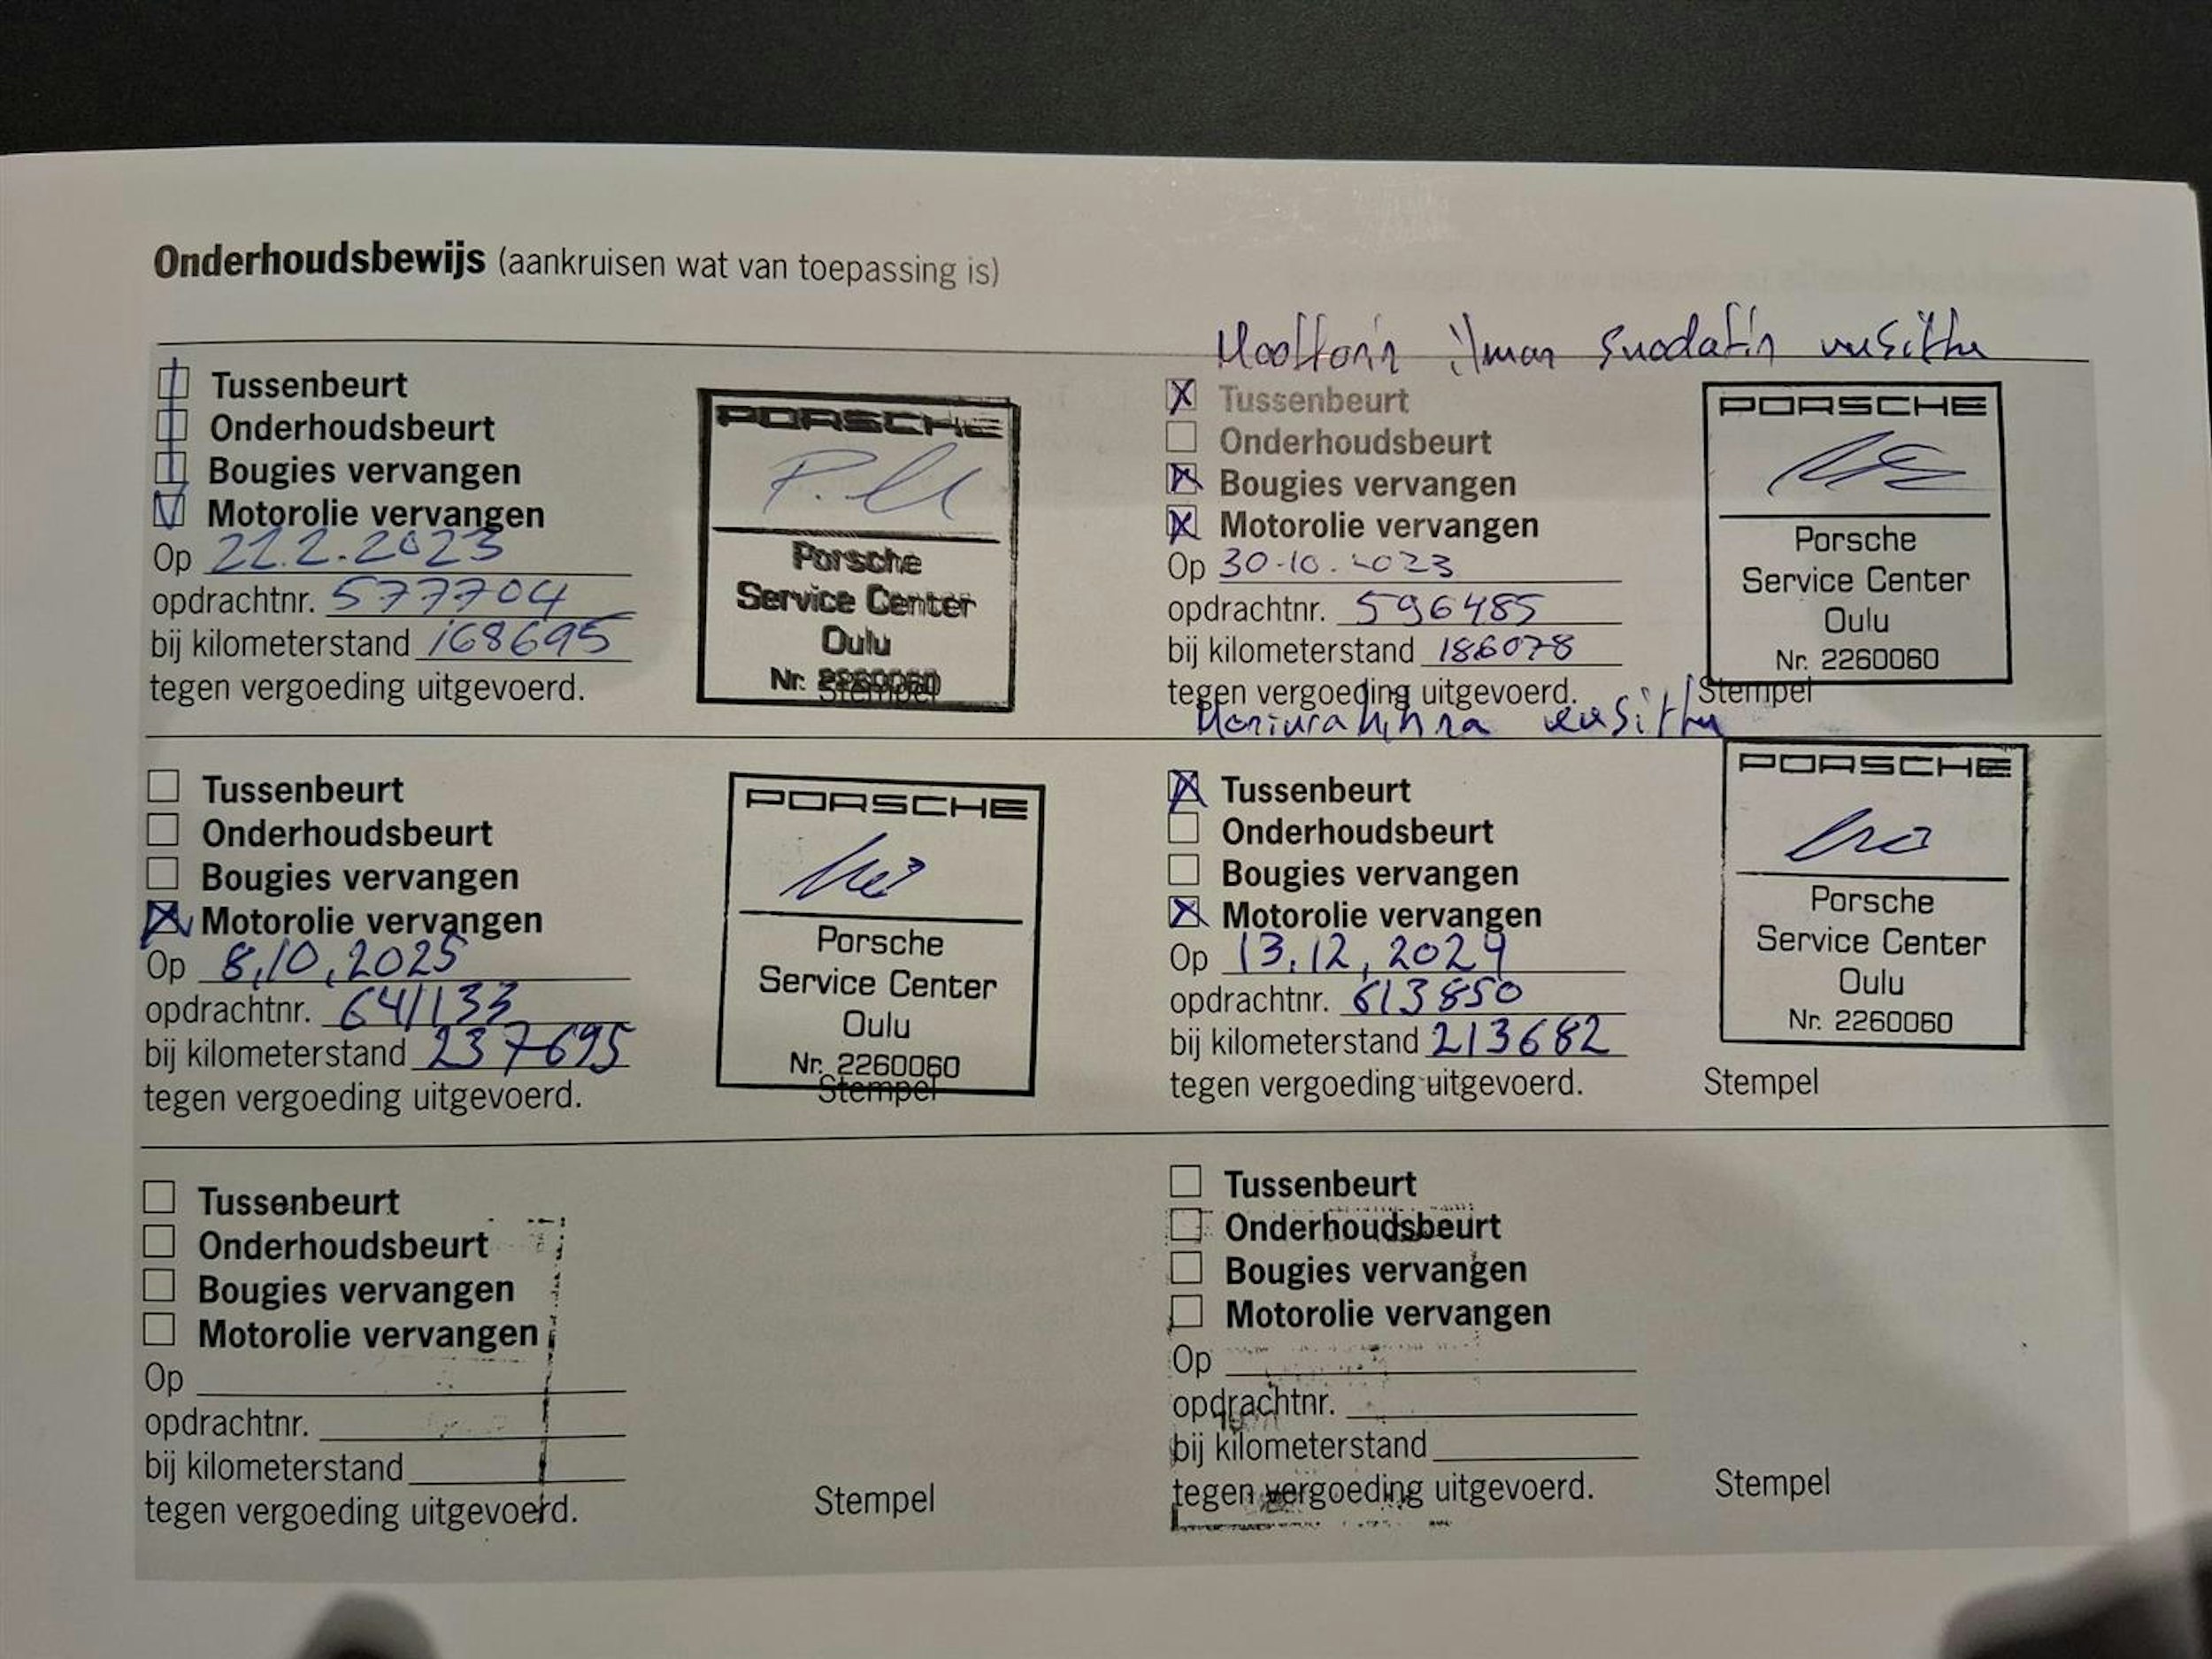 Onderhoudsbewijs (aankruisen wat van toepassing is)
Tussenbeurt
Onderhoudsbeurt
Bougies vervangen
Motorolie vervangen
Op 22.2.2023
opdrachtnr. 577704
bij kilometerstand 168695
tegen vergoeding uitgevoerd.
PORSCHE
Porsche
Service Center
Oulu
Nr. 2260060
Stempel
Moottorin ilman suodatin vusittu
Tussenbeurt
Onderhoudsbeurt
Bougies vervangen
Motorolie vervangen
Op 30.10.2023
opdrachtnr. 596485
bij kilometerstand 186078
tegen vergoeding uitgevoerd.
PORSCHE
Porsche
Service Center
Oulu
Nr. 2260060
Stempel
Moniurahihna uusittu
Tussenbeurt
Onderhoudsbeurt
Bougies vervangen
Motorolie vervangen
Op 8,10,2025
opdrachtnr. 641133
bij kilometerstand 237695
tegen vergoeding uitgevoerd.
PORSCHE
Porsche
Service Center
Oulu
Nr. 2260060
Stempel
Tussenbeurt
Onderhoudsbeurt
Bougies vervangen
Motorolie vervangen
Op 13.12,2024
opdrachtnr. 613850
bij kilometerstand 213682
tegen vergoeding uitgevoerd.
PORSCHE
Porsche
Service Center
Oulu
Nr. 2260060
Stempel
Tussenbeurt
Onderhoudsbeurt
Bougies vervangen
Motorolie vervangen
Op
opdrachtnr.
bij kilometerstand
tegen vergoeding uitgevoerd.
Stempel
Tussenbeurt
Onderhoudsbeurt
Bougies vervangen
Motorolie vervangen
Op
opdrachtnr.
bij kilometerstand
tegen vergoeding uitgevoerd.
Stempel